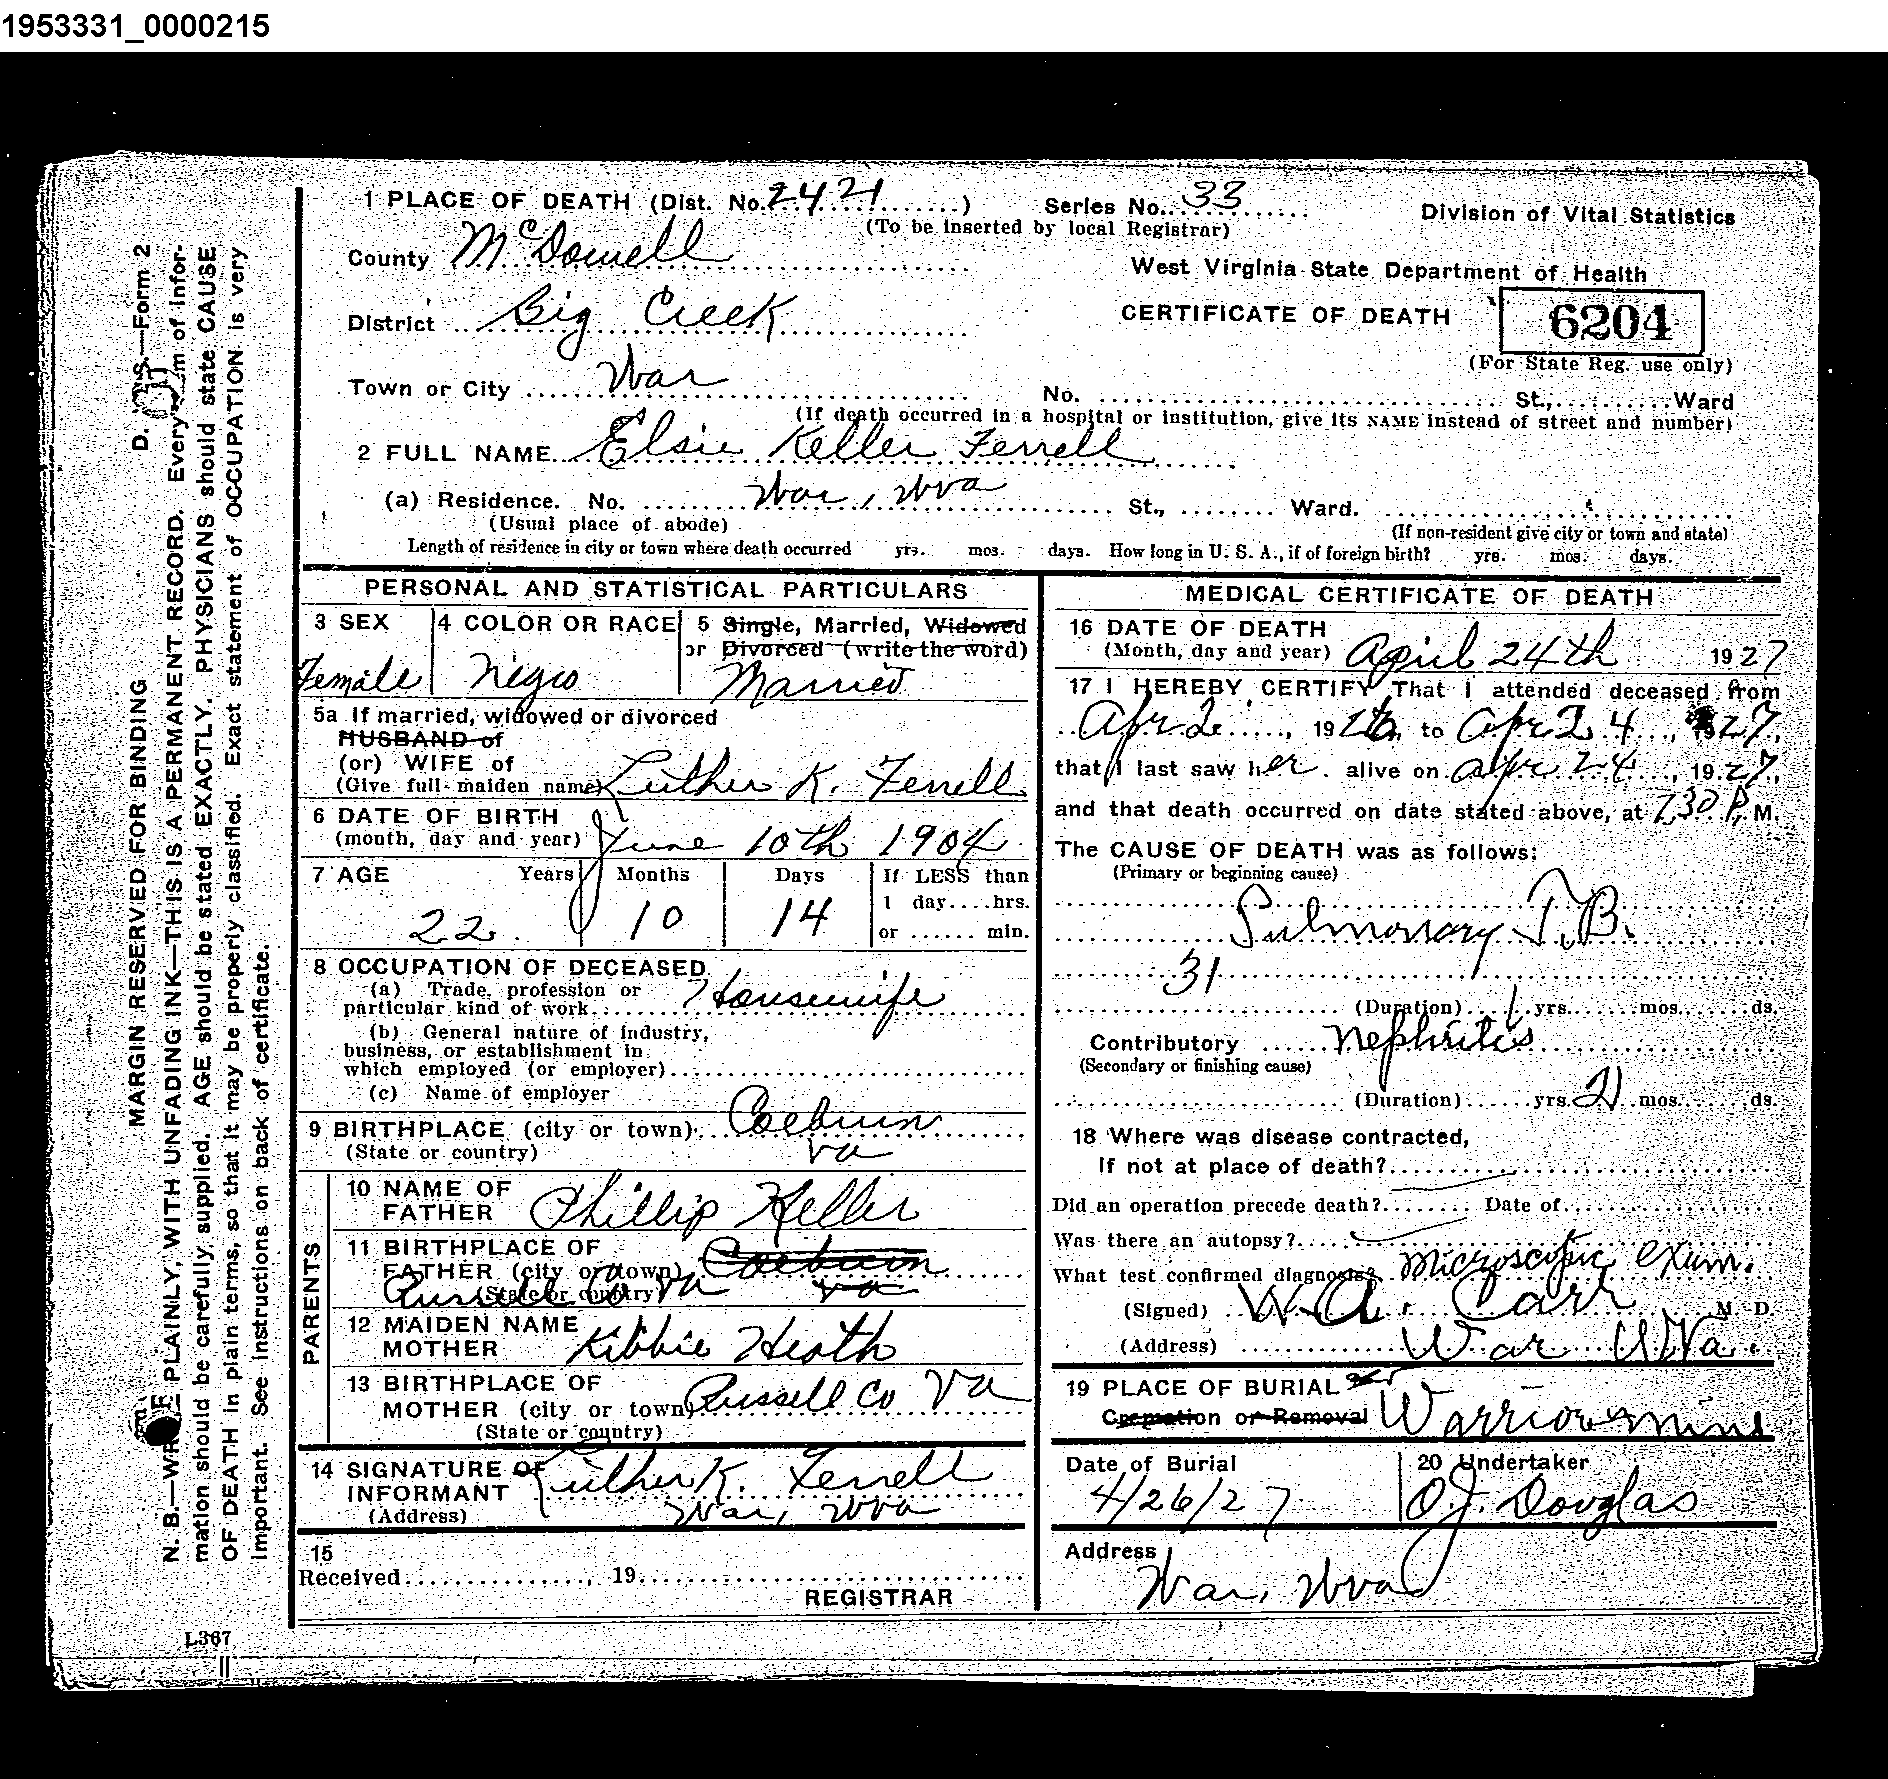 1953331_0000215
1 PLACE OF DEATH (Dist. No. 2421 ) Series No. 33 Division of Vital Statistics
(To be inserted by local Registrar)
County McDowell
West Virginia State Department of Health
District Big Creek
CERTIFICATE OF DEATH 6204
(For State Reg. use only)
Town or City War
No. St., Ward
(If death occurred in a hospital or institution, give its NAME instead of street and number)
2 FULL NAME Elsie Keller Ferrell
(a) Residence. No. War, Wva St., Ward.
(Usual place of abode) (If non-resident give city or town and state)
Length of residence in city or town where death occurred yrs. mos. days. How long in U. S. A., if of foreign birth? yrs. mos. days.
PERSONAL AND STATISTICAL PARTICULARS
3 SEX 4 COLOR OR RACE 5 Single, Married, Widowed
or Divorced (write the word)
Female Negro Married
5a If married, widowed or divorced
HUSBAND of
(or) WIFE of
(Give full maiden name) Luther K. Ferrell
6 DATE OF BIRTH
(month, day and year) June 10th 1904
7 AGE Years Months Days If LESS than
1 day....hrs.
22 10 14 or ...... min.
8 OCCUPATION OF DECEASED
(a) Trade, profession or
particular kind of work Housewife
(b) General nature of industry,
business, or establishment in
which employed (or employer)
(c) Name of employer
9 BIRTHPLACE (city or town) Coeburn
(State or country) Va
PARENTS
10 NAME OF
FATHER Phillip Keller
11 BIRTHPLACE OF
FATHER (city or town) Coeburn
(State or country) Va
Russell Co Va
12 MAIDEN NAME
MOTHER Kibbie Heath
13 BIRTHPLACE OF
MOTHER (city or town) Russell Co Va
(State or country)
14 SIGNATURE OF
INFORMANT Luther K. Ferrell
(Address) War, Wva
15
Received , 19
REGISTRAR
MEDICAL CERTIFICATE OF DEATH
16 DATE OF DEATH
(Month, day and year) April 24th 1927
17 I HEREBY CERTIFY That I attended deceased from
Apr 2 , 192 to Apr 24 , 1927,
that I last saw her alive on Apr 24 , 1927,
and that death occurred on date stated above, at 730 P, M.
The CAUSE OF DEATH was as follows:
(Primary or beginning cause)
Pulmonary T.B.
31
(Duration) 1 yrs. mos. ds.
Contributory Nephritis
(Secondary or finishing cause)
(Duration) yrs. 2 mos. ds.
18 Where was disease contracted,
If not at place of death?
Did an operation precede death? Date of
Was there an autopsy?
What test confirmed diagnosis? Microscopic exam.
(Signed) W. A. Carr M. D.
(Address) War W.Va.
19 PLACE OF BURIAL
Cremation or Removal Warriormine
Date of Burial 20 Undertaker
4/26/27 O.J. Douglas
Address
War, Wva
MARGIN RESERVED FOR BINDING D. S.—Form 2
N. B.—WRITE PLAINLY, WITH UNFADING INK—THIS IS A PERMANENT RECORD. Every item of infor-
mation should be carefully supplied. AGE should be stated EXACTLY. PHYSICIANS should state CAUSE
OF DEATH in plain terms, so that it may be properly classified. Exact statement of OCCUPATION is very
important. See instructions on back of certificate.
L367